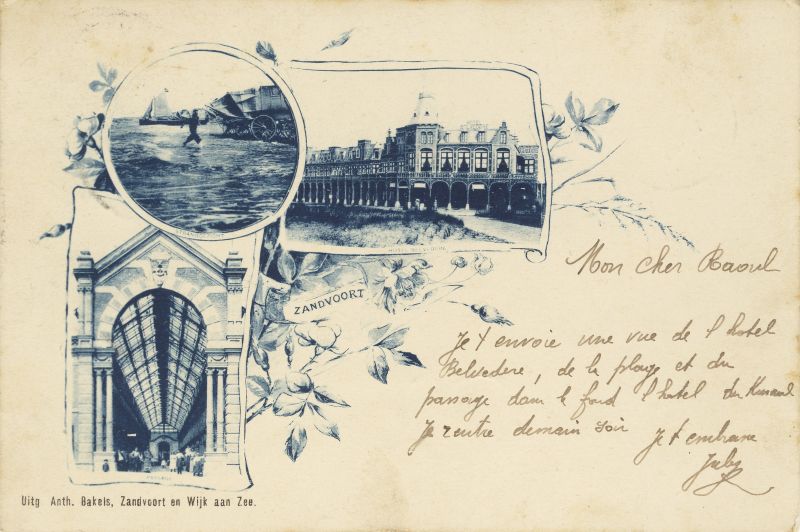 STRAND
HOTEL BELVEDERE
ZANDVOORT
PASSAGE
Mon cher Raoul
Je t envoie une vue de l hotel
Belvedere, de la plage et du
passage dans le fond l hotel du Kursaal
Je rentre demain soir Je t embrasse
Jules
Uitg Anth. Bakels, Zandvoort en Wijk aan Zee.